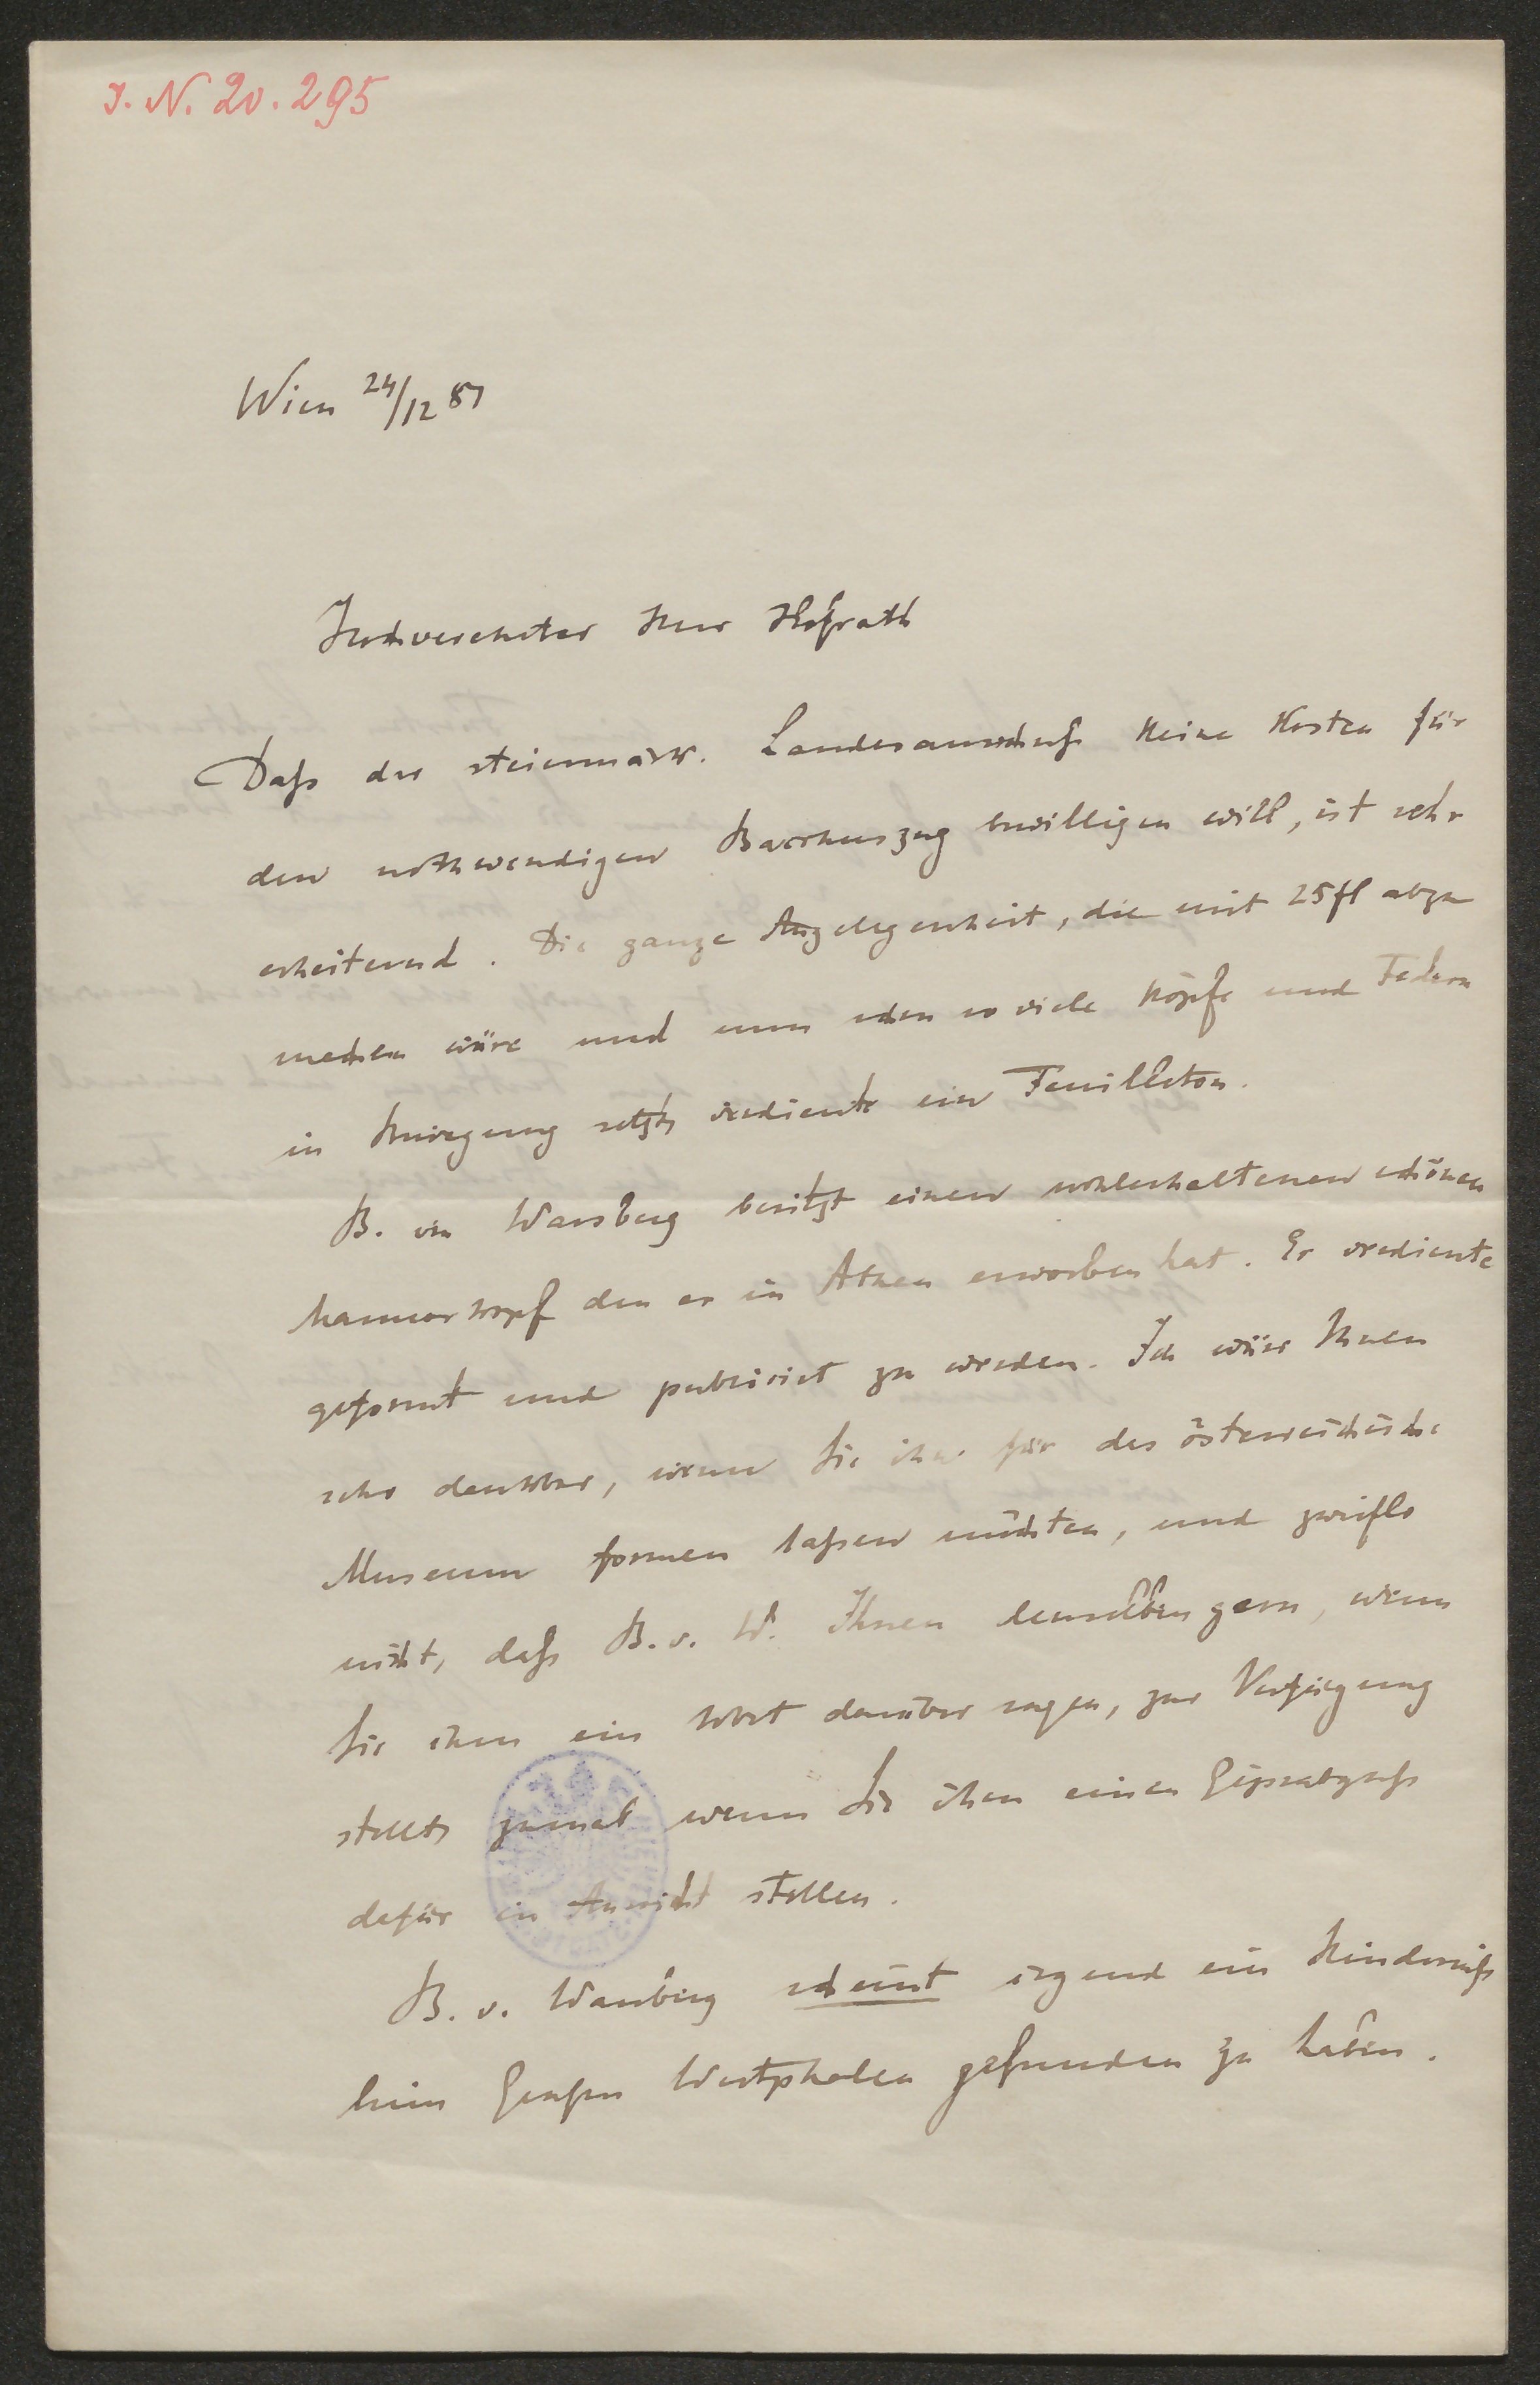 J. N. 20.295
Wien 24/12 87
Hochverehrter Herr Hofrath
Daß der steiermärk. Landesausschuß keine Kosten für
den nothwendigen Bacchuszug bewilligen will, ist sehr
erheiternd. Die ganze Angelegenheit, die mit 25 fl abzu
machen wäre und nun schon so viele Köpfe und Federn
in Bewegung setzte verdiente ein Feuilleton.
B. von Warsberg besitzt einen wohlerhaltenen schönen
Marmorkopf den er in Athen erworben hat. Er verdiente
geformt und publicirt zu werden. Ich wäre Ihnen
sehr dankbar, wenn Sie ihn für das österreichische
Museum formen laßen möchten, und zweifle
nicht, daß B. v. W. Ihnen denselben gern, wenn
Sie ihm ein Wort darüber sagen, zur Verfügung
stellt, zumal wenn Sie ihm einen Gipsabguß
dafür in Aussicht stellen.
B. v. Warsberg scheint irgend ein Hinderniß
beim Grafen Westphalen gefunden zu haben.